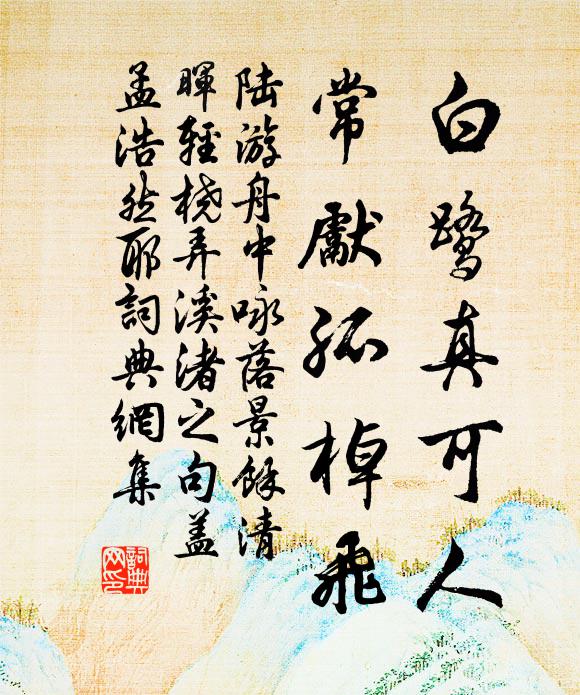 白鹭真可人
常献孤棹飛
陆游舟中咏落景餘清
暉輕桡弄溪渚之句蓋
孟浩然耶詞典網集
詞典
网印